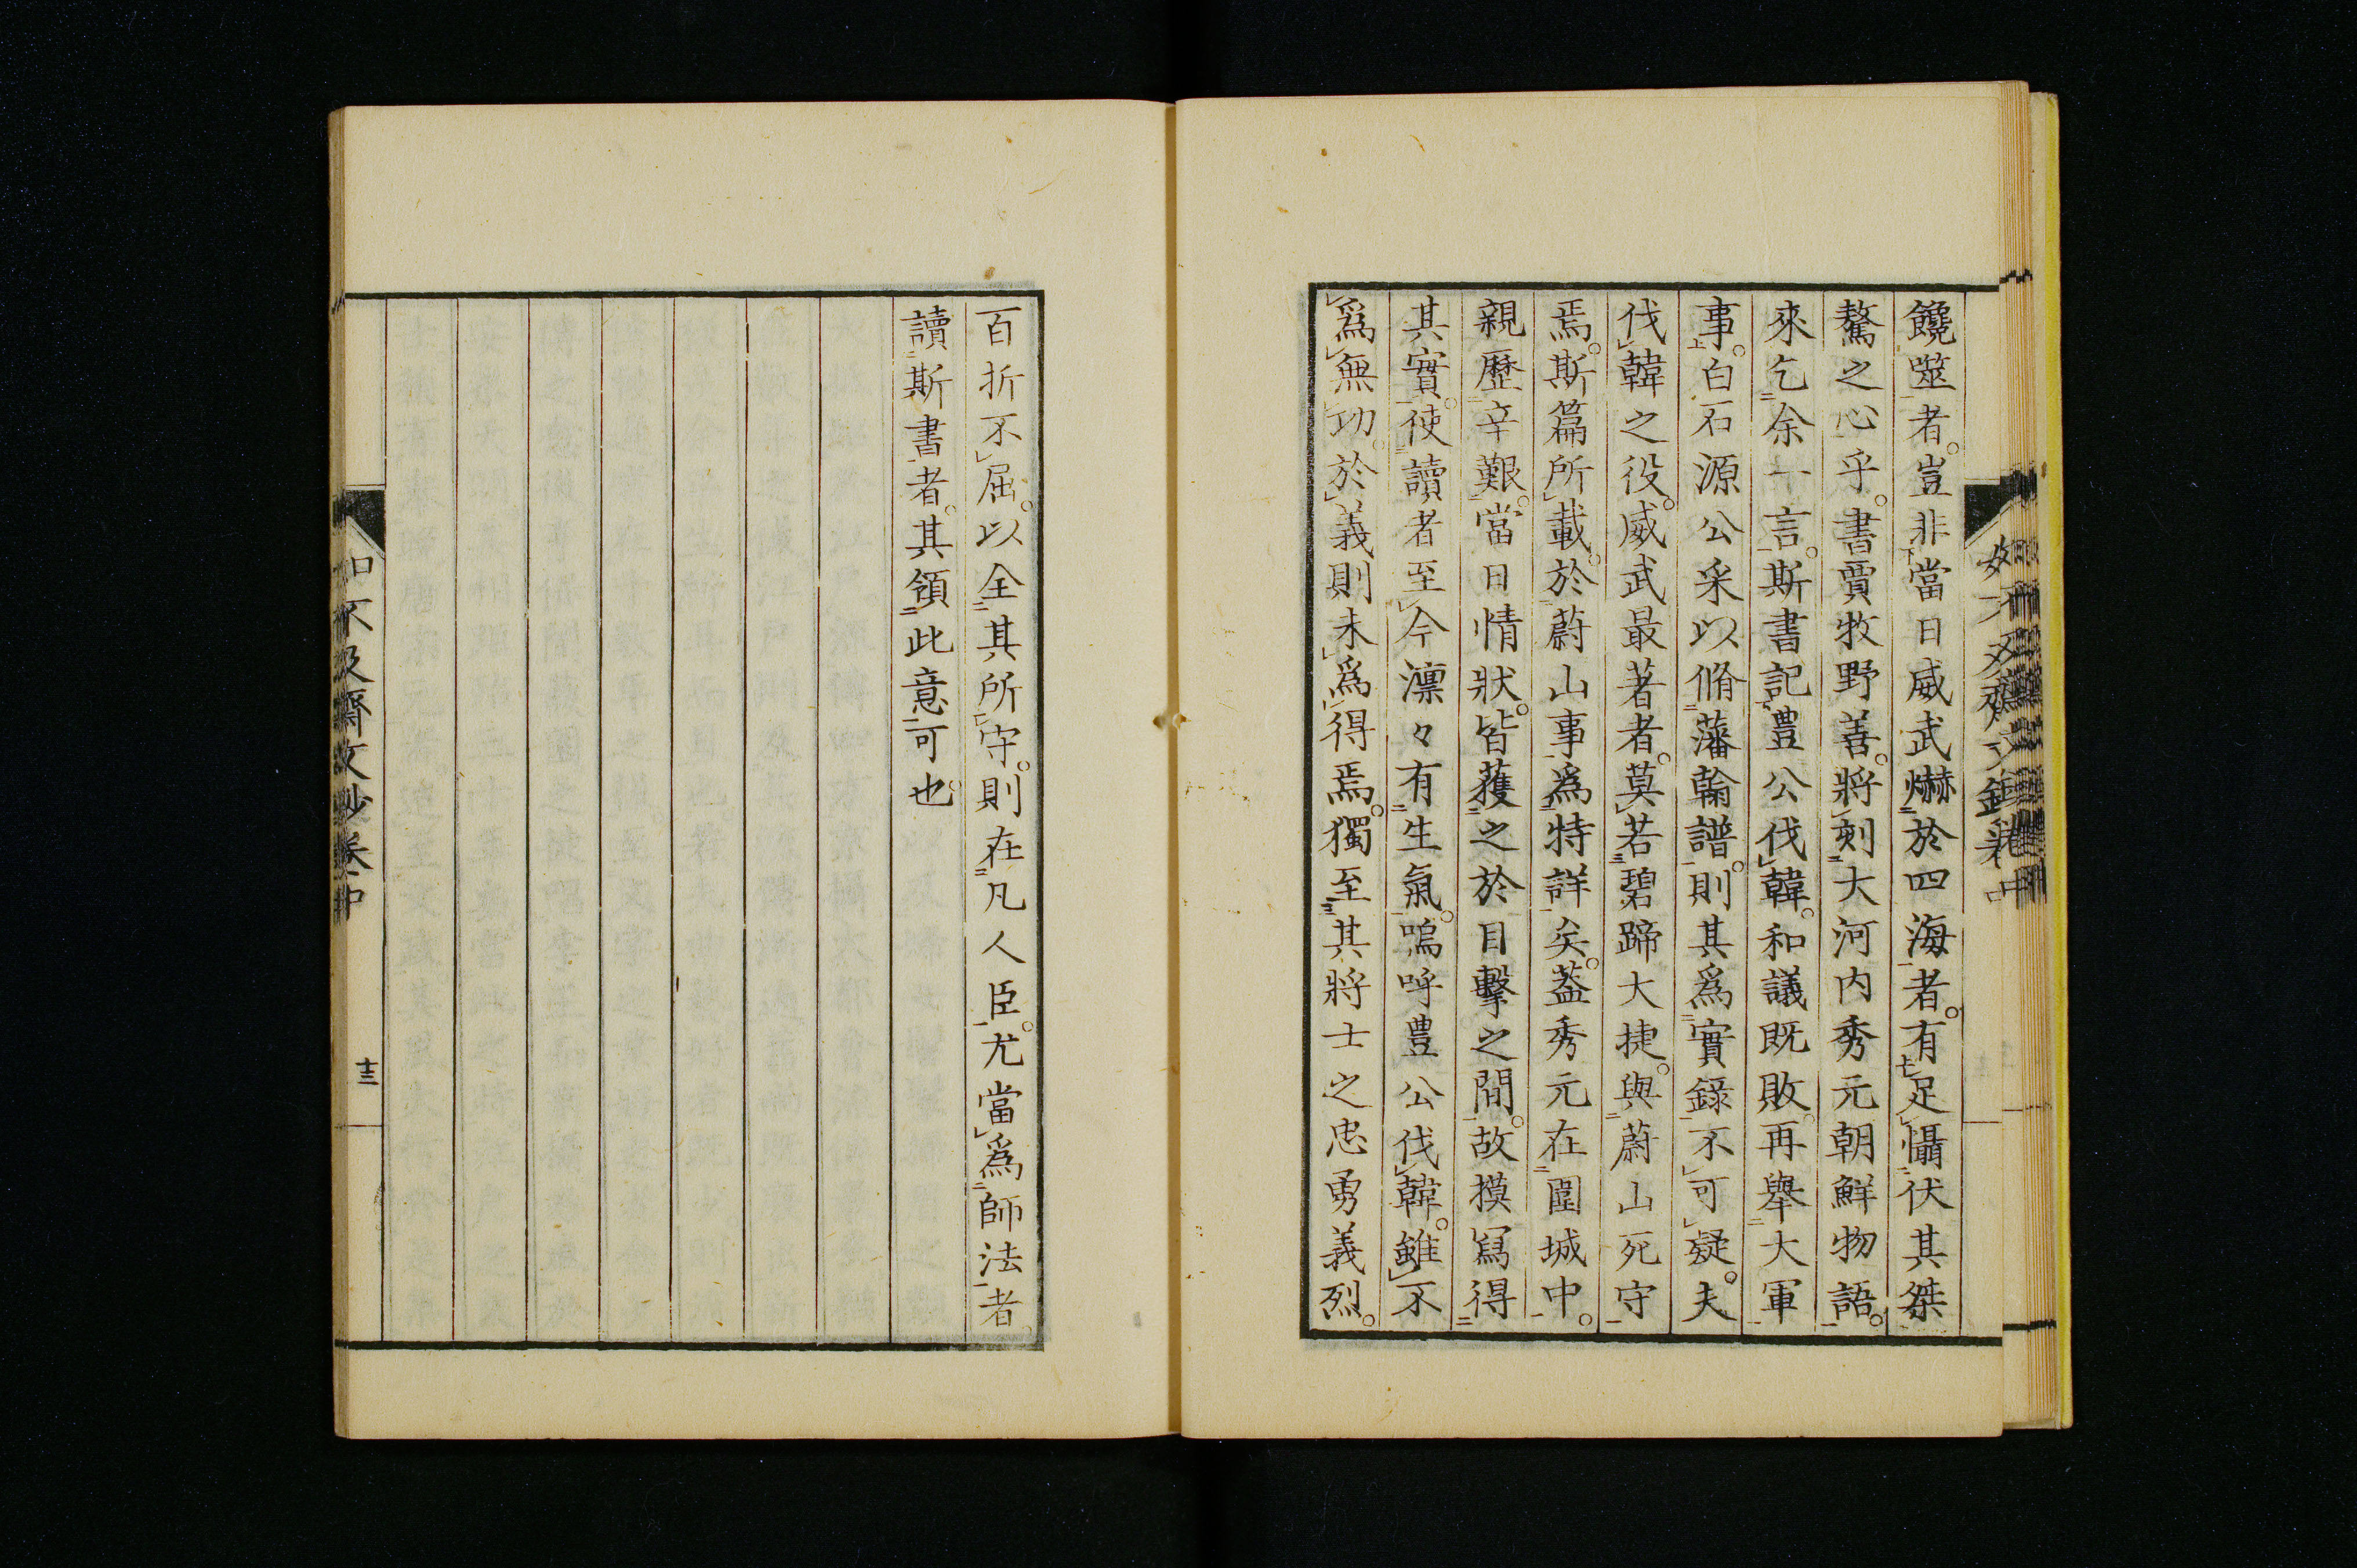 饞噬者。豈非當日威武爀於四海者。有足懾伏其桀
驁之心乎。書賈牧野善。將刻大河内秀元朝鮮物語。
來乞余一言。斯書記豊公伐韓。和議既敗。再舉大軍
事。白石源公采以脩藩翰譜。則其爲實錄不可疑。夫
伐韓之役。威武最著者。莫若碧蹄大捷。與蔚山死守
焉。斯篇所載。於蔚山事爲特詳矣。葢秀元在圍城中。
親歷辛艱。當日情狀。皆獲之於目擊之間。故摸寫得
其實。使讀者至今凛々有生氣。嗚呼豊公伐韓。雖不
爲無功。於義則未爲得焉。獨至其將士之忠勇義烈。
百折不屈。以全其所守。則在凡人臣。尤當爲師法者。
讀斯書者。其領此意可也。
如不及齋文鈔卷中
十三